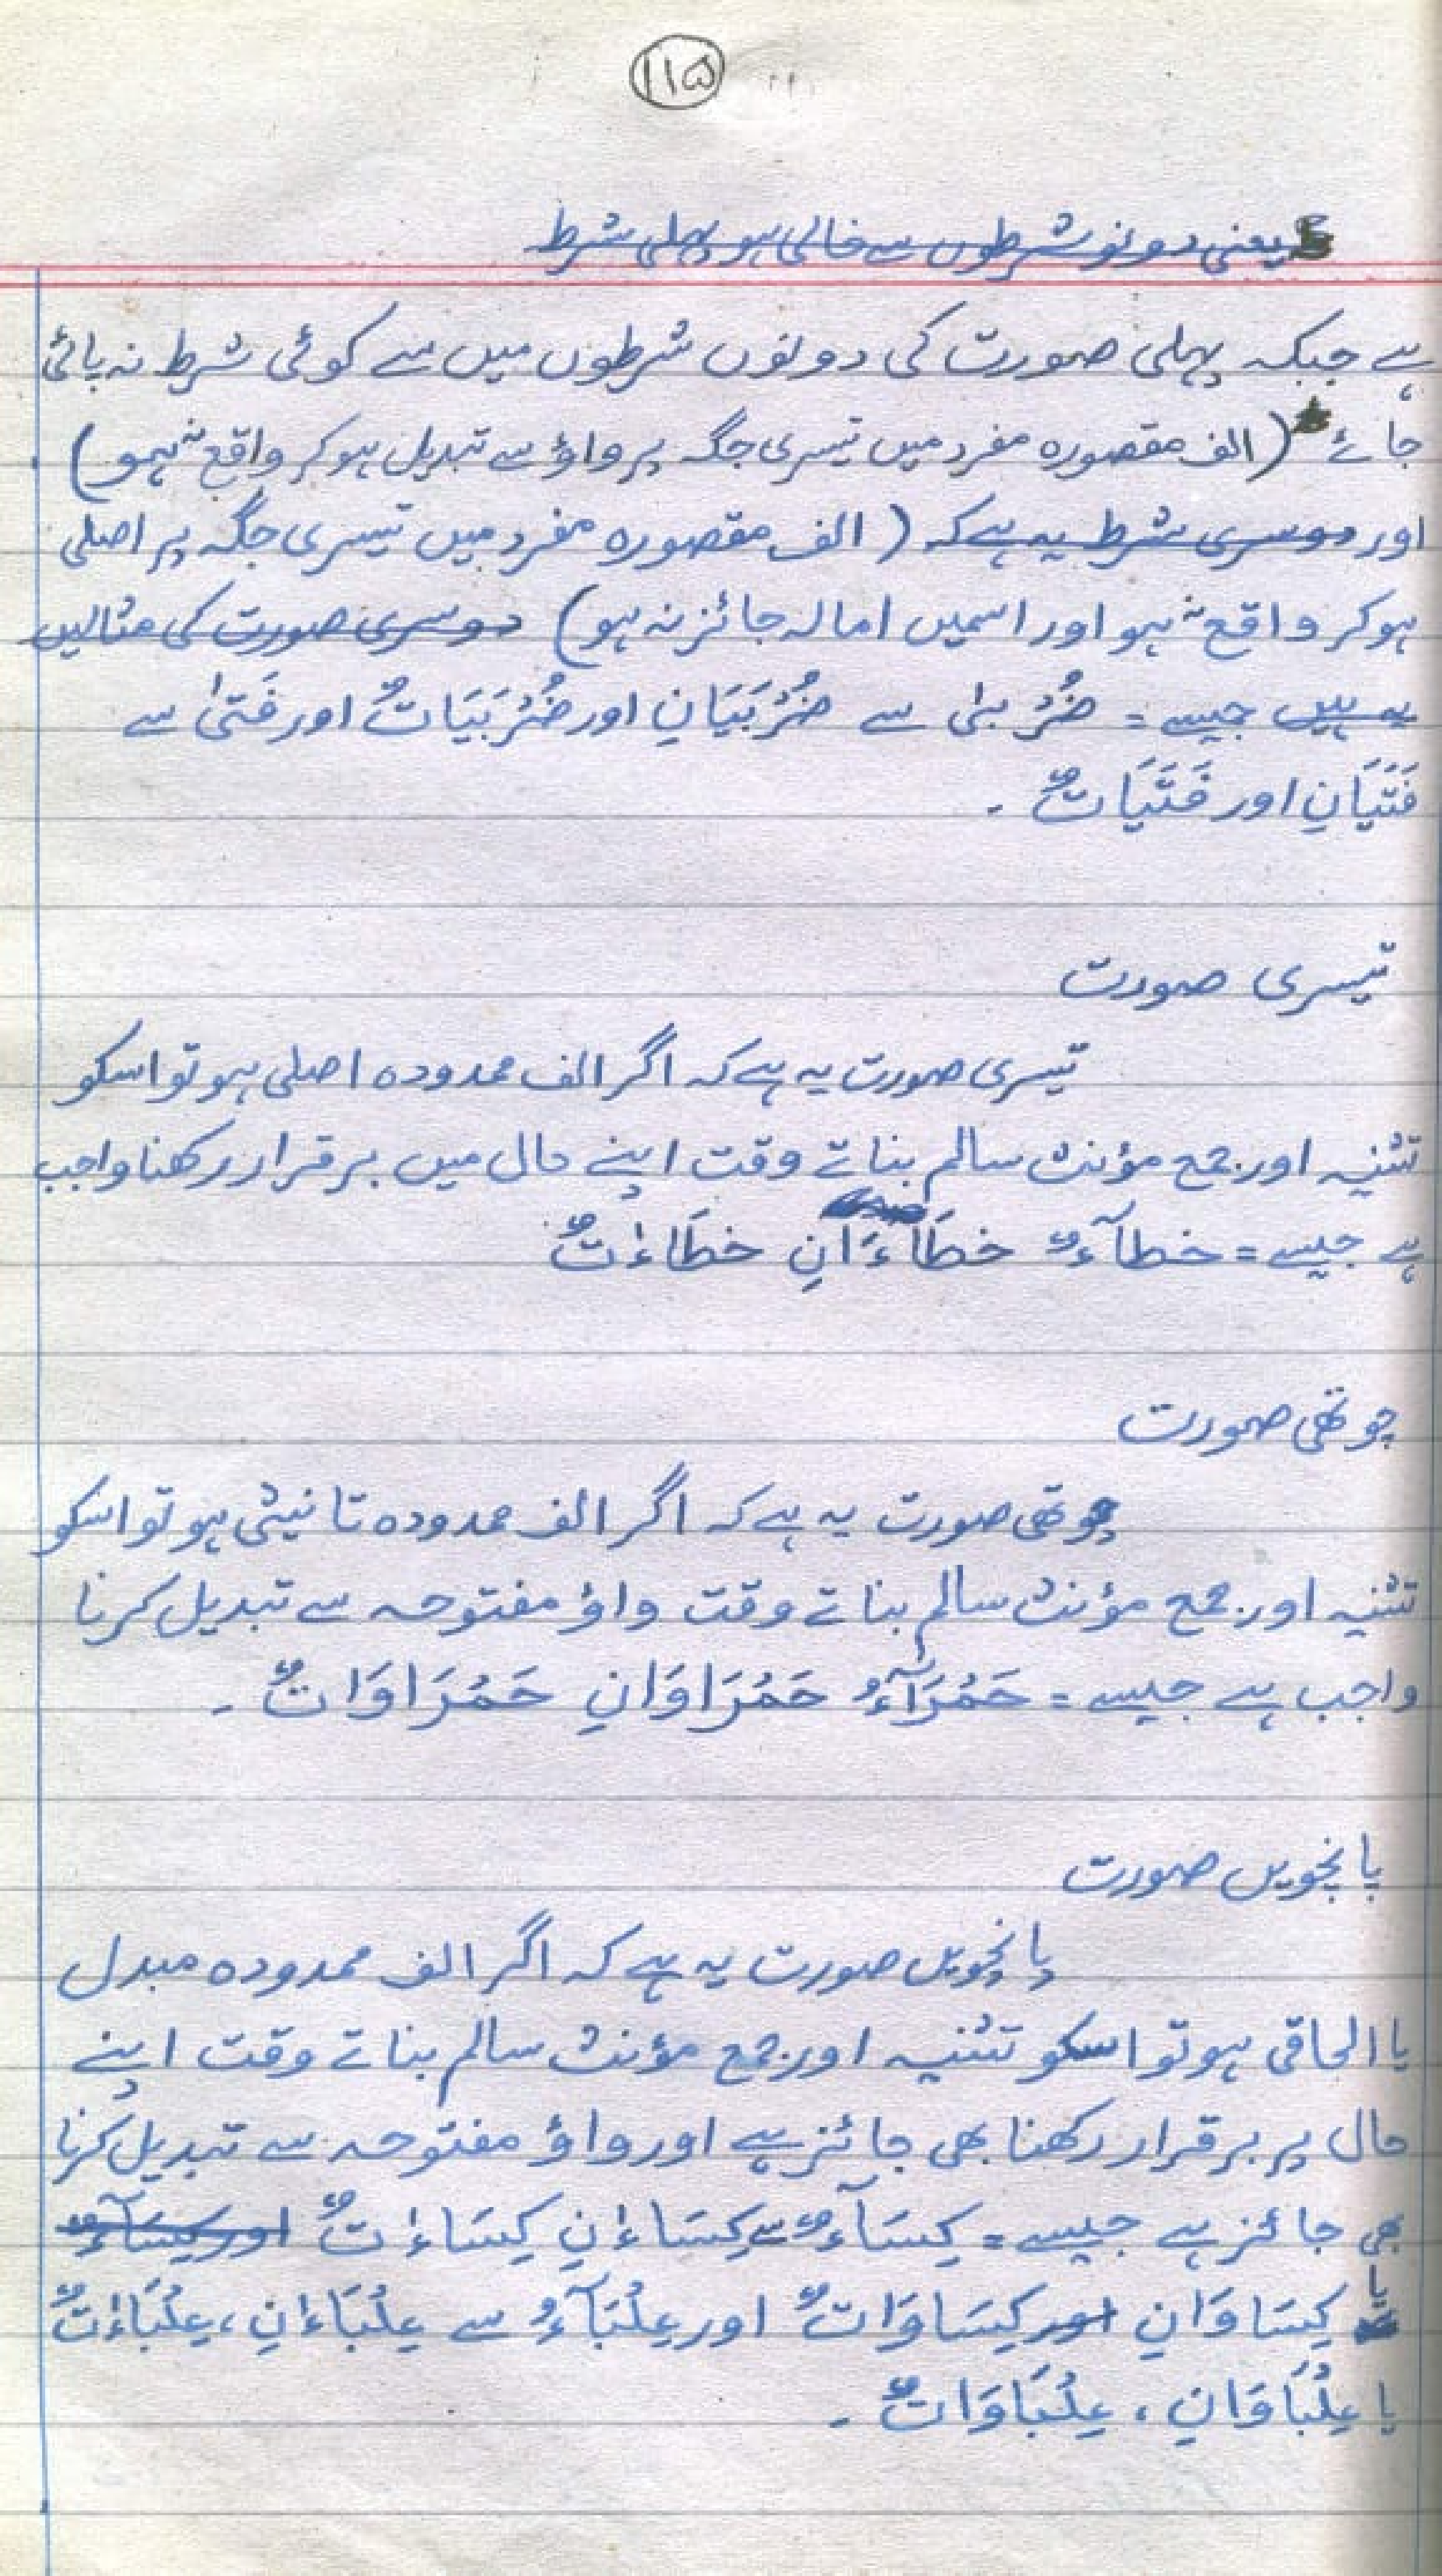 ۱۱۵
یعنی دونو شرطوں سے خالی ہو پہلی شرط
ہے جبکہ پہلی صورت کی دونوں شرطوں میں سے کوئی شرط نہ پائی
جائے (الف مقصورہ مفرد میں تیسری جگہ پر واؤ سے تبدیل ہوکر واقع نہ ہو)
اور دوسری شرط یہ ہے کہ (الف مقصورہ مفرد میں تیسری جگہ پر اصلی
ہوکر واقع نہ ہو اور اسمیں امالہ جائز نہ ہو) دوسری صورت کی مثالیں
یہ ہیں جیسے = ضُرْبٰی سے ضُرْبَیَانِ اور ضُرْبَیَاتٌ اور فَتیٰ سے
فَتَیَانِ اور فَتَیَاتٌ ۔
تیسری صورت
تیسری صورت یہ ہے کہ اگر الف ممدودہ اصلی ہو تو اسکو
تثنیہ اور جمع مؤنث سالم بناتے وقت اپنے حال میں برقرار رکھنا واجب
ہے جیسے = خطآءٌ خطَاءَانِ خطَاءٰتٌ
چوتھی صورت
چوتھی صورت یہ ہے کہ اگر الف ممدودہ تانیثی ہو تو اسکو
تثنیہ اور جمع مؤنث سالم بناتے وقت واؤ مفتوحہ سے تبدیل کرنا
واجب ہے جیسے = حَمْرَآءُ حَمْرَاوَانِ حَمْرَاوَاتٌ ۔
پانچویں صورت
پانچویں صورت یہ ہے کہ اگر الف ممدودہ مبدل
یا الحاقی ہو تو اسکو تثنیہ اور جمع مؤنث سالم بناتے وقت اپنے
حال پر برقرار رکھنا بھی جائز ہے اور واؤ مفتوحہ سے تبدیل کرنا
بھی جائز ہے جیسے = کِسَآءٌ سے کِسَاءٰنِ کِسَاءٰتٌ اور کِسَآءٌ
یا کِسَاوَانِ اور کِسَاوَاتٌ اور عِلْبَآءُ سے عِلْبَاءٰنِ ، عِلْبَاءٰتٌ
یا عِلْبَاوَانِ ، عِلْبَاوَاتٌ ۔